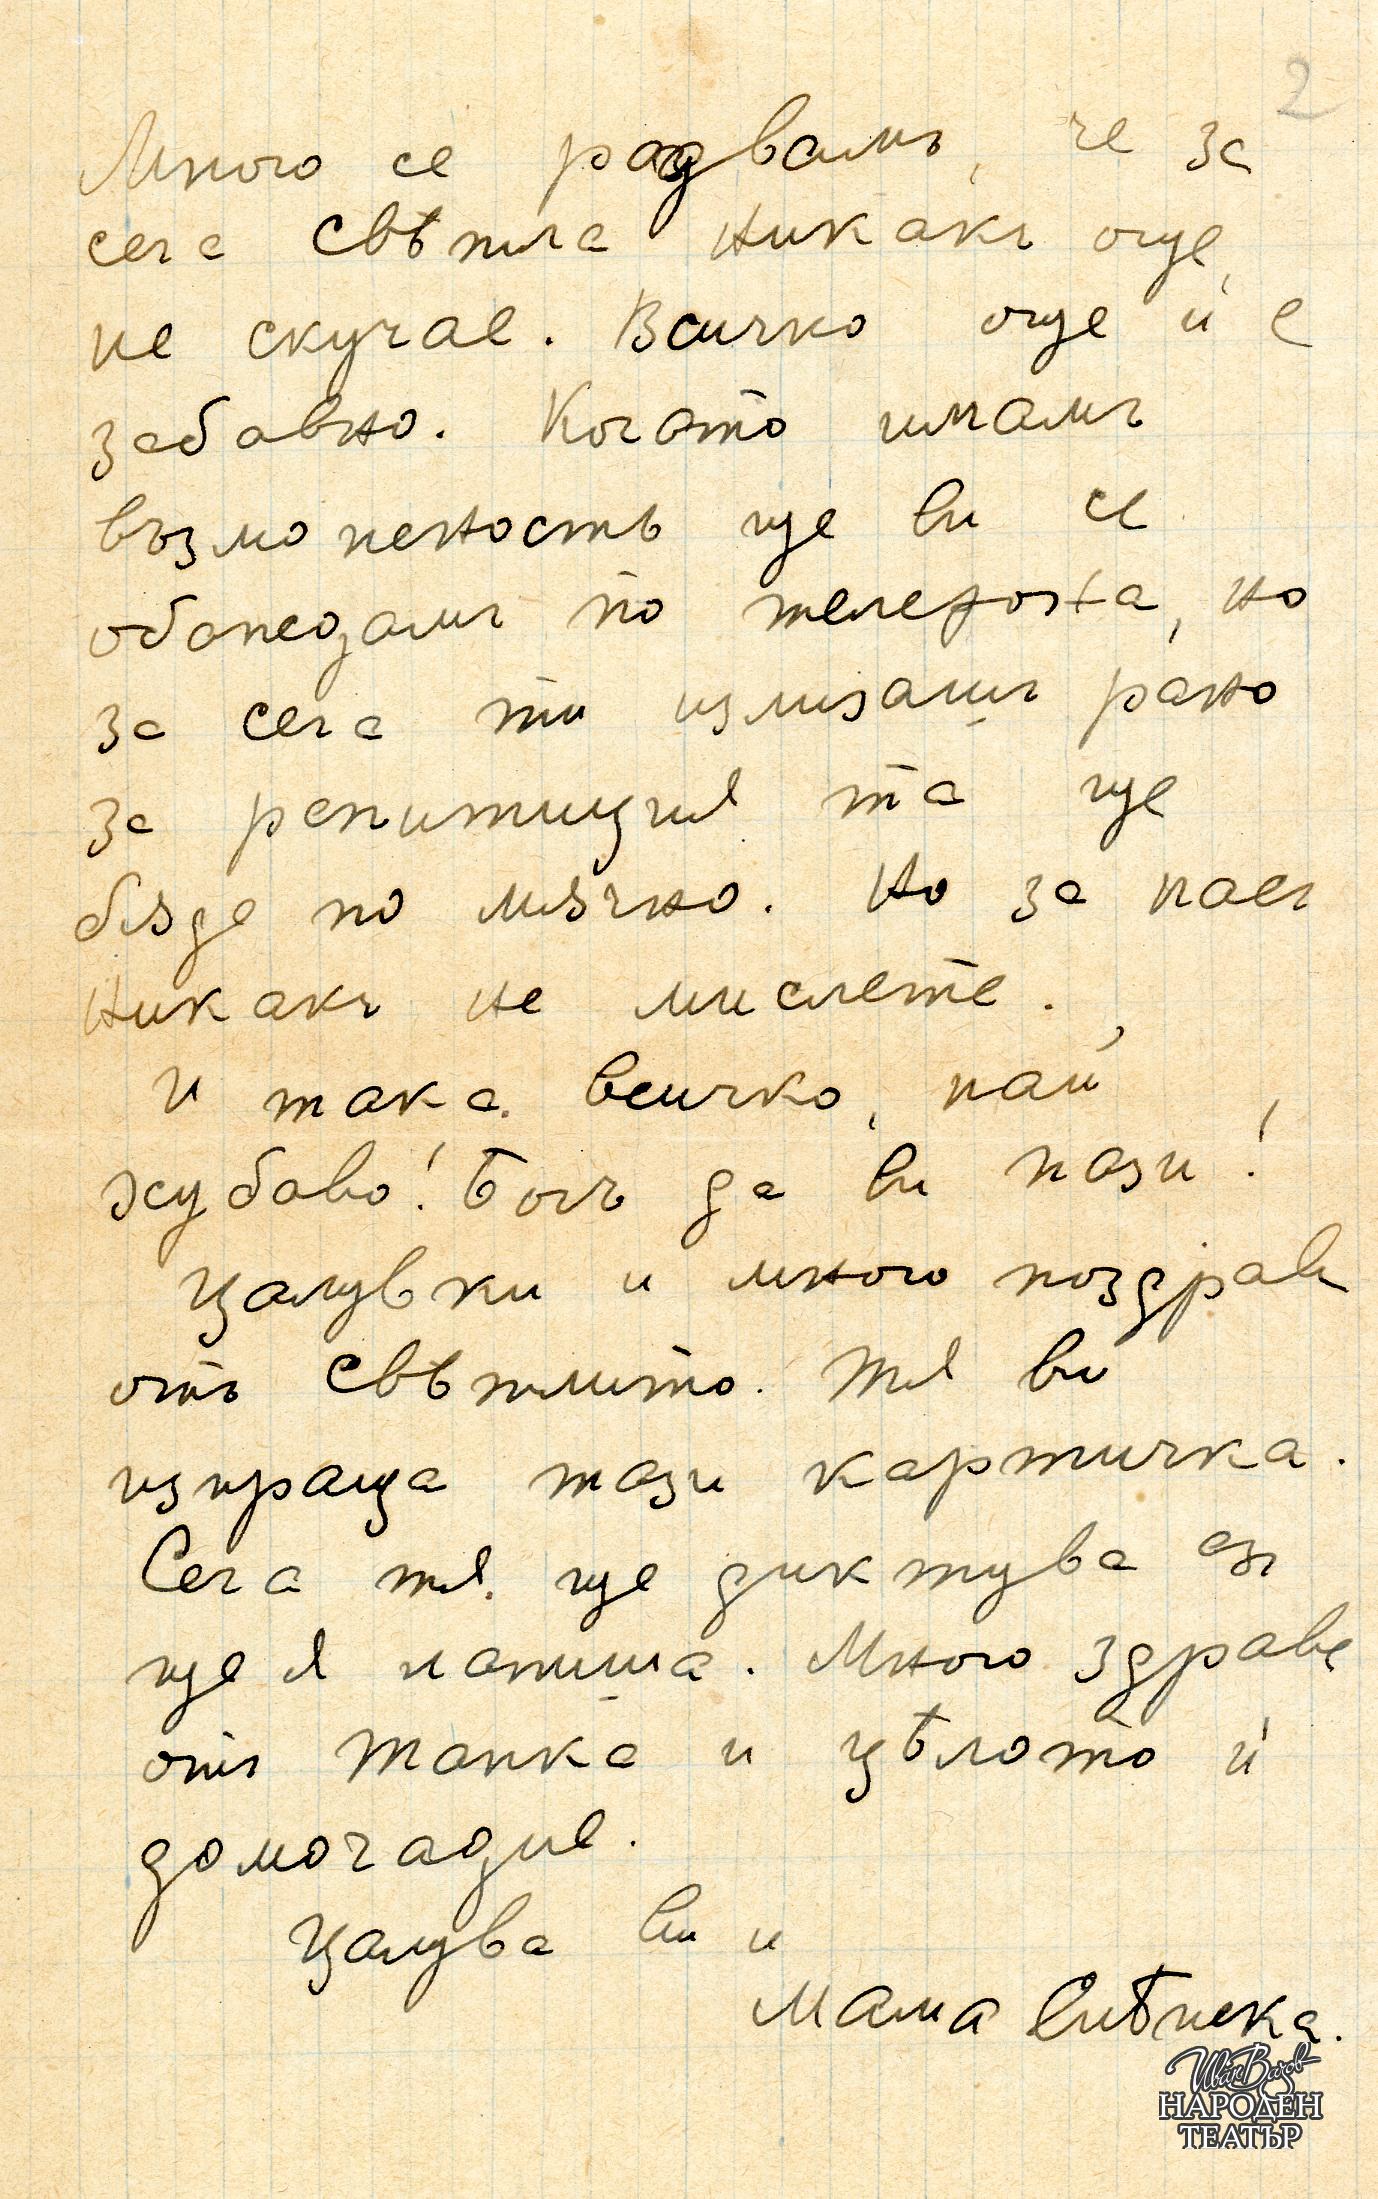 2
Много се радвамъ, че за
сега Свѣтла никакъ още,
не скучае. Всичко още ѝ е
забавно. Когато имамъ
възможность ще ви се
обаждамъ по телефона, но
за сега ти излизашъ рано
за репитиция та ще
бѫде по мѫчно. Но за насъ
никакъ не мислете.
И така всичко, най
хубаво! Богъ да ви пази!
Цалувки и много поздрави
отъ Свѣтлито. Тя ви
изпраща тази картичка.
Сега тя ще диктува азъ
ще я напиша. Много здраве
отъ Танка и цѣлото ѝ
домочадие.
Цалува ви и
Мама
Иван Вазов
НАРОДЕН
ТЕАТЪР